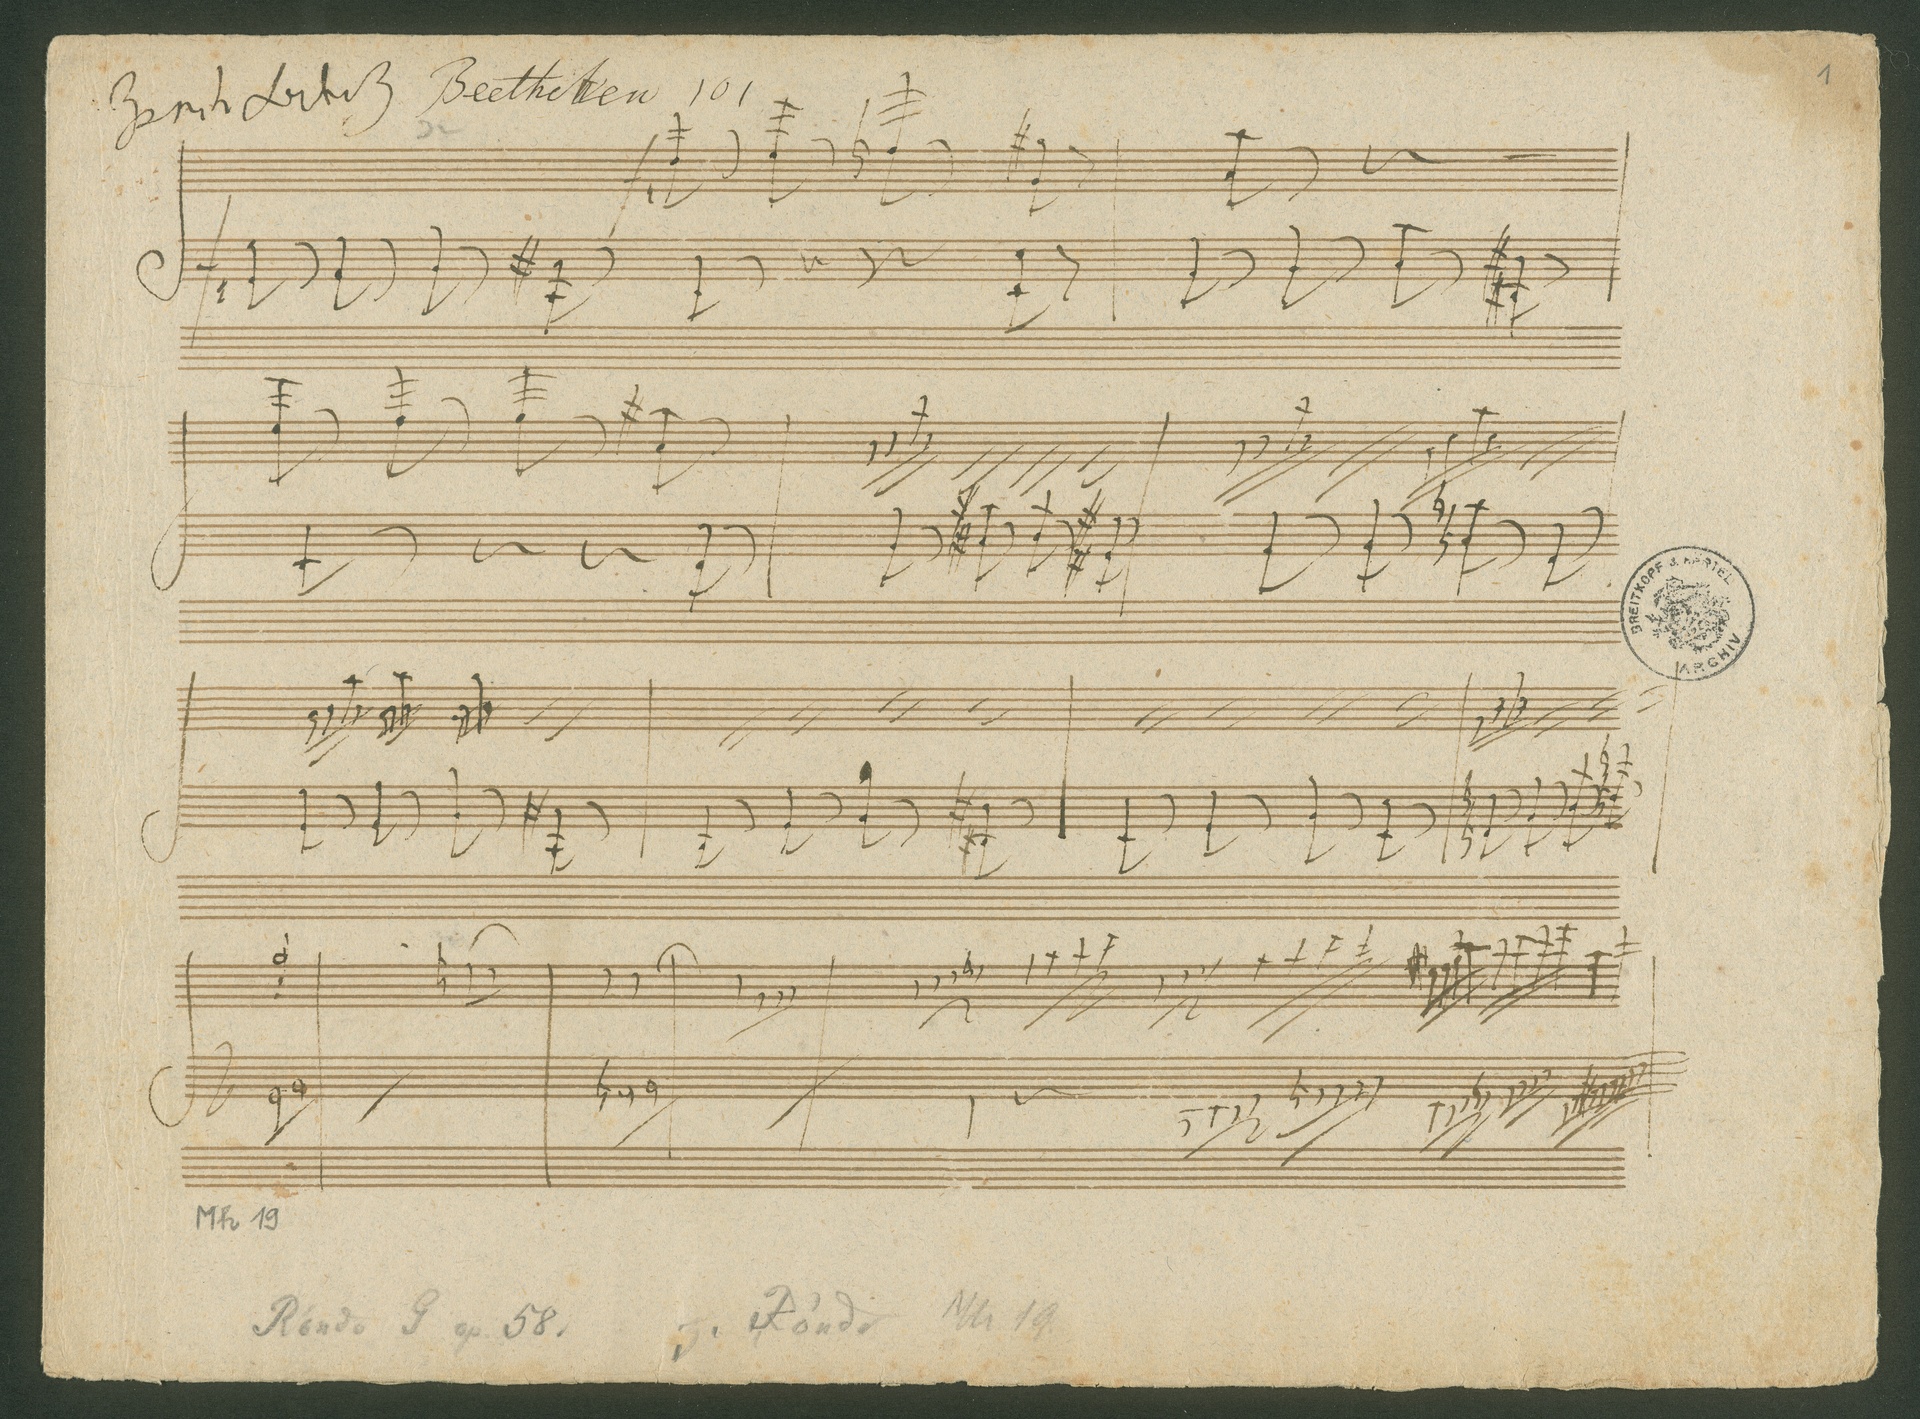 Beethoven 101
1
BREITKOPF & HÄRTEL
ARCHIV
Mh 19
Rondo G op 58. z. Rondo Mh 19